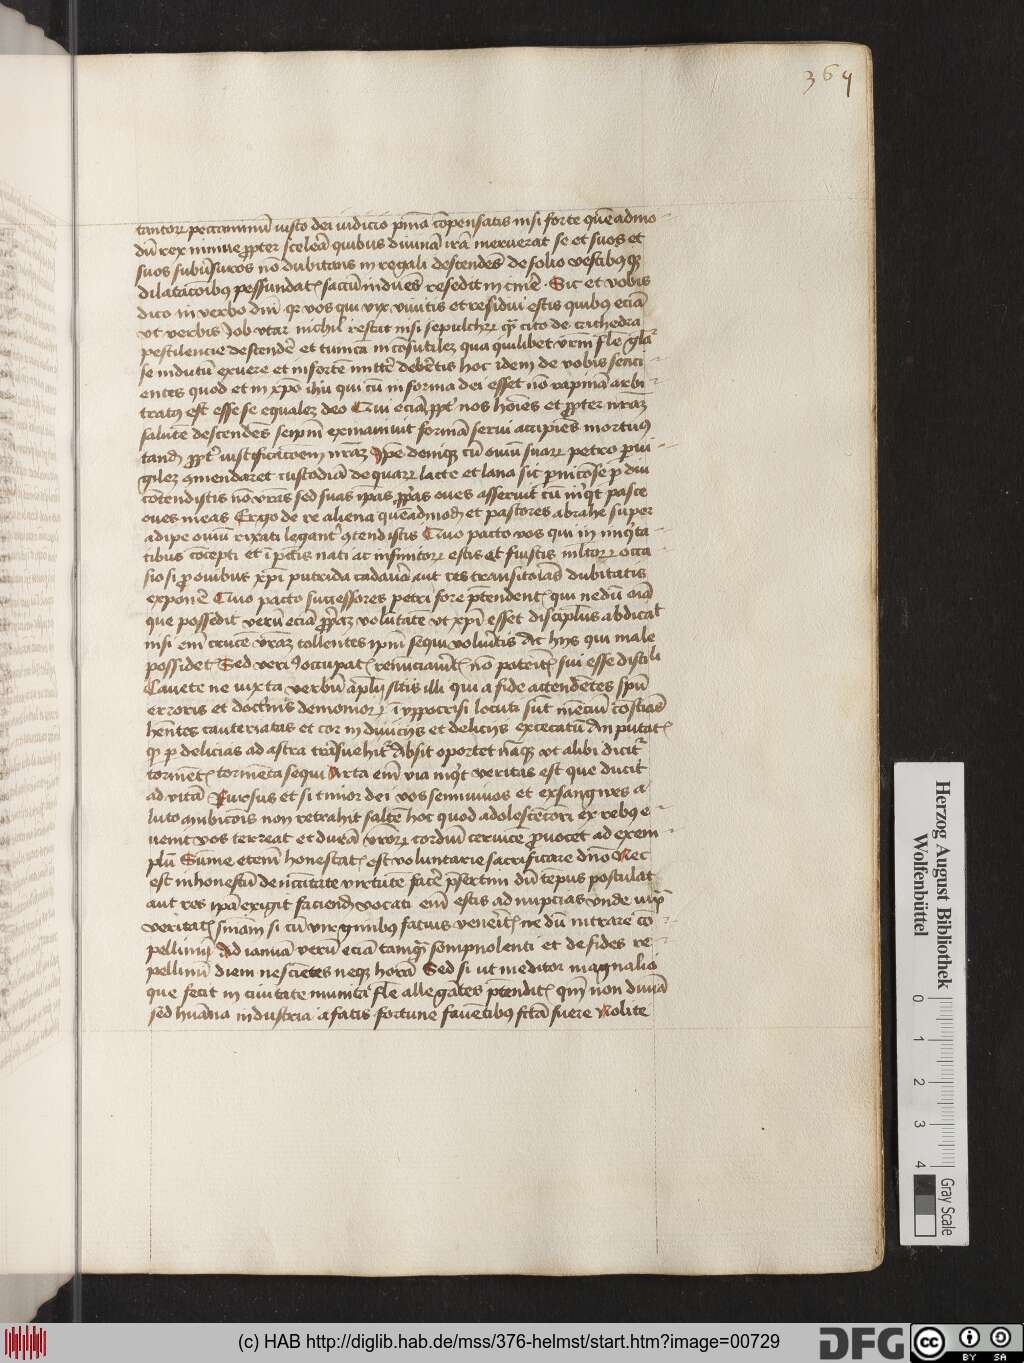 364
tantorum peccaminum iusto dei iudicio pena compensatis nisi forte quemadmo
dum rex ninive propter scelera quibus divinam iram meruerat se et suos et
suos subversuros non dubitans in regali descendens de solio vestibus
dilatacoibus saccum indues resedit in cinere. Sic et vobis
dico in verbo dni qz vos qui vix viuitis et residui estis quibus eciam
ut verbis Job utar nichil restat nisi sepulchrum cito de cathedra
pestilencie descendere et tunica inconsutilez qua quilibet
se indutum exuere et in sortem mittere debetis hoc idem de vobis
entes quod et in xpo ihu qui cum in forma dei esset non rapinam arbi
tratus est esse se equalez deo Qui eciam propter nos homines et propter nostram
salutem descendens seipm exinanivit formam servi accipiens mortuus
tandem propter iustificacoem nostram Ipse demque cum ouium suarum petro
commendaret custodiam de quarum lacte et lana sic
contendistis non vras sed suas ipas proprias oues asseruit cum inquit pasce
oues meas Ergo de re aliena quemadmodum et pastores abrahe super
adipe ouium rixati contendistis Quo pacto vos qui in iniquita
tibus concepti et in peccatis nati ac infinitorum estis et fuistis occa
sio si pro ouibus xpi putrida cadauera aut res transitorias dubitatis
exponere Quo pacto successores petri fore pretendentes qui nedum omnia
que possedit verum eciam propriam voluntatem ut xpi esset discipulus abdicavit
nisi enim crucem vram tollentes ipm sequi volueritis Ac hijs qui male
possidet Sed verius occupat renunciaveritis non poteritis sui esse discipuli
Cauete ne iuxta verbum apli sitis illi qui a fide attendentes spiritum
erroris et doctrinis demoniorum in ypocrisi locuti sunt mendacium conscienciam
habentes cauteriatas et cor in diuicijs et delicijs excecatum An putatis
qd per delicias ad astra transuehit Absit oportet namque ut alibi dicitur
tormenta sequi Arta enim via inquit veritas est que ducit
ad vitam Rursus et si timor dei vos semiuiuos et exsangues a
luto ambicois non retrahit saltem hoc quod adolescentiori ex rebus e
uenit vos terreat et duram vrorum cordium ceruicem prouocet ad exem
plum Summe etenim honestatis est voluntarie sacrificare domino Nec
est inhonestum de necessitate virtutem facere presertim dum tempus postulat
aut res ipa exigit faciendum vocati enim estis ad nupcias unde
veritatis si cum virginibus fatuis veneritis nedum intrare co
pellimini Ad ianuam verum eciam tamquam sompnolenti et desides re
pellimini diem nescientes neque horam Sed si ut meditor magnalia
que fecit in ciuitate munita allegantes pretenditis non diuina
sed humana industria a fatis fortune fauentibus facta fuere Nolite
Herzog August Bibliothek
Wolfenbüttel
0 1 2 3 4
Gray Scale
(c) HAB http://diglib.hab.de/mss/376-helmst/start.htm?image=00729
DFG
cc BY SA